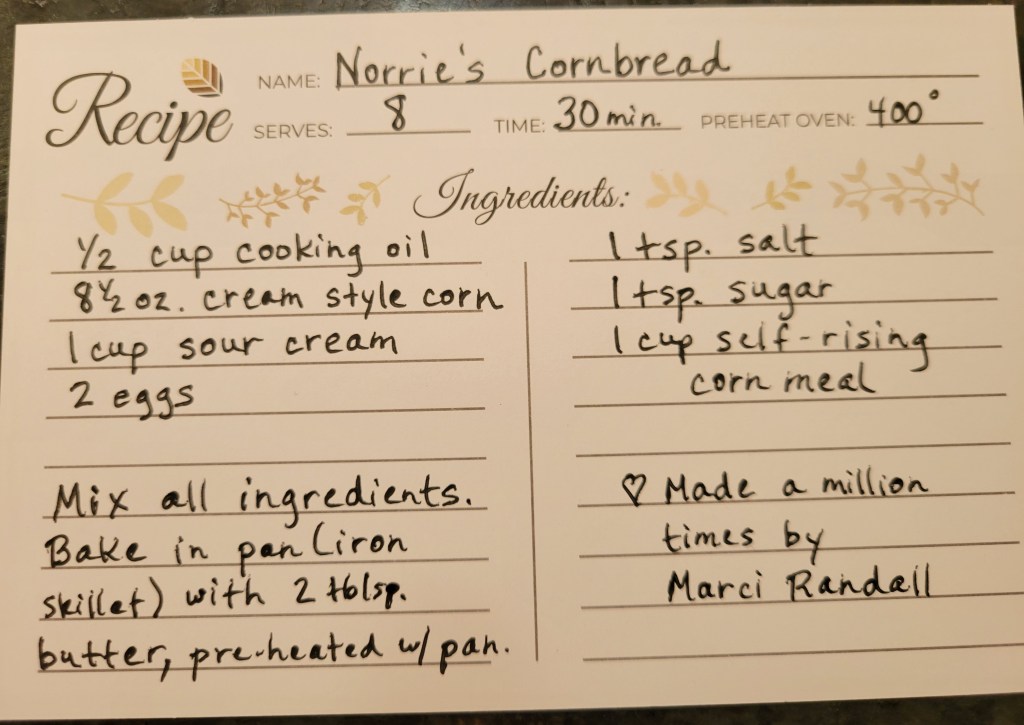 Recipe
NAME: Norrie's Cornbread
SERVES: 8 TIME: 30 min. PREHEAT OVEN: 400°
Ingredients:
1/2 cup cooking oil
8 1/2 oz. cream style corn
1 cup sour cream
2 eggs
Mix all ingredients.
Bake in pan (iron
skillet) with 2 tblsp.
butter, pre-heated w/ pan.
1 tsp. salt
1 tsp. sugar
1 cup self-rising
corn meal
♡ Made a million
times by
Marci Randall